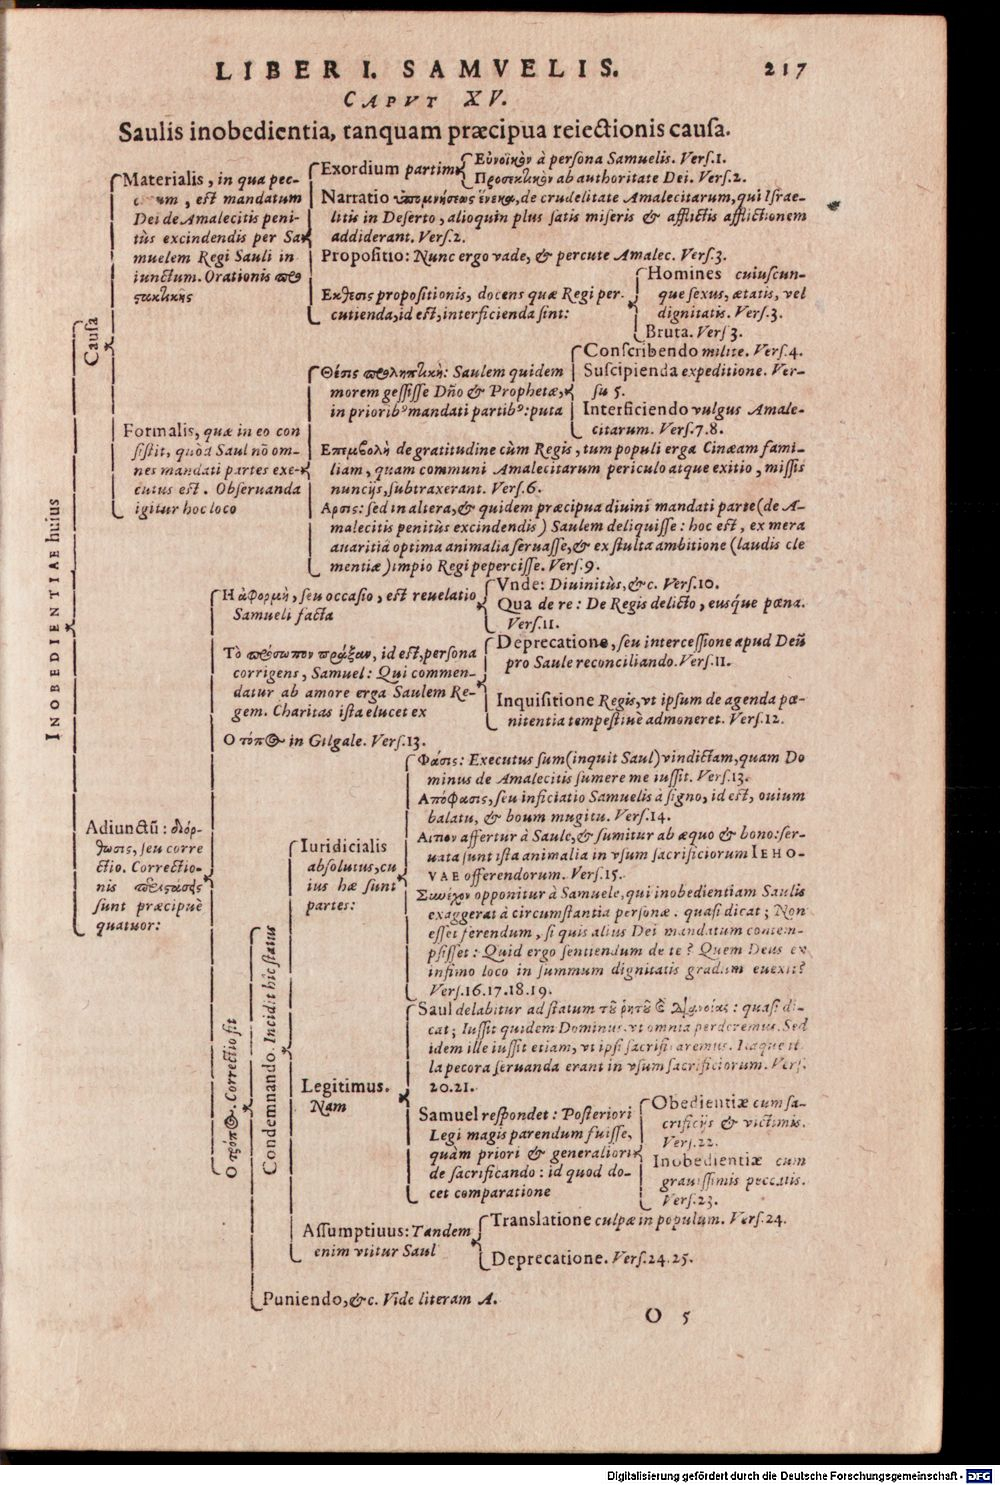 LIBER I. SAMVELIS. 217
CAPVT XV.
Saulis inobedientia, tanquam præcipua reiectionis causa.
INOBEDIENTIAE huius
Causa
Materialis, in qua pec-
, est mandatum
Dei de Amalecitis peni-
tùs excindendis per Sa
muelem Regi Sauli in
iunctum. Orationis
Exordium partim
Εὐνοϊκὸν à persona Samuelis. Vers.1.
Προσεκτικὸν ab authoritate Dei. Vers.2.
Narratio ὑπομνήσεως ἕνεκα, de crudelitate Amalecitarum, qui Israe-
litis in Deserto, alioquin plus satis miseris & afflictis afflictionem
addiderant. Vers.2.
Propositio: Nunc ergo vade, & percute Amalec. Vers.3.
Εκθεσις propositionis, docens quæ Regi per-
cutienda, id est, interficienda sint:
Homines cuiuscun-
que sexus, ætatis, vel
dignitatis. Vers.3.
Bruta. Vers 3.
Formalis, quæ in eo con
sistit, quòd Saul nō om-
nes mandati partes exe-
cutus est. Obseruanda
igitur hoc loco
Θέσις προληπτική: Saulem quidem
morem gessisse Dño & Prophetæ,
in priorib⁹ mandati partib⁹: puta
Conscribendo milite. Vers.4.
Suscipienda expeditione. Ver-
su 5.
Interficiendo vulgus Amale-
citarum. Vers.7.8.
Επεμβολὴ de gratitudine cùm Regis, tum populi erga Cinæam fami-
liam, quam communi Amalecitarum periculo atque exitio, missis
nuncijs, subtraxerant. Vers.6.
Αρσις: sed in altera, & quidem præcipua diuini mandati parte (de A-
malecitis penitùs excindendis) Saulem deliquisse: hoc est, ex mera
auaritia optima animalia seruasse, & ex stulta ambitione (laudis cle
mentiæ) impio Regi pepercisse. Vers.9.
Adiunctū: διόρ-
θωσις, seu corre
ctio. Correctio-
nis περιστάσεις
sunt præcipuè
quatuor:
Η ἀφορμὴ, seu occasio, est reuelatio
Samueli facta
Vnde: Diuinitùs, &c. Vers.10.
Qua de re: De Regis delicto, eiusque pœna.
Vers.11.
Τὸ πρόσωπον πράξαν, id est, persona
corrigens, Samuel: Qui commen-
datur ab amore erga Saulem Re-
gem. Charitas ista elucet ex
Deprecatione, seu intercessione apud Deū
pro Saule reconciliando. Vers.11.
Inquisitione Regis, vt ipsum de agenda pœ-
nitentia tempestiuè admoneret. Vers.12.
Ο τόπος in Gilgale. Vers.13.
Ο τρόπος. Correctio fit
Condemnando. Incidit hîc status
Iuridicialis
absolutus, cu
ius hæ sunt
partes:
Φάσις: Executus sum (inquit Saul) vindictam, quam Do
minus de Amalecitis sumere me iussit. Vers.13.
Απόφασις, seu inficiatio Samuelis à signo, id est, ouium
balatu, & boum mugitu. Vers.14.
Αιτιον affertur à Saule, & sumitur ab æquo & bono: ser-
uata sunt ista animalia in vsum sacrificiorum IEHO-
VAE offerendorum. Vers.15.
Συνέχον opponitur à Samuele, qui inobedientiam Saulis
exaggerat à circumstantia personæ. quasi dicat; Non
esset ferendum, si quis alius Dei mandatum contem-
psisset: Quid ergo sentiendum de te? Quem Deus ex
infimo loco in summum dignitatis gradum euexit?
Vers.16.17.18.19.
Legitimus.
Nam
Saul delabitur ad statum τοῦ ῥητοῦ & διανοίας: quasi di-
cat; Iussit quidem Dominus, vt omnia perderemus. Sed
idem ille iussit etiam, vt ipsi sacrificaremus. Itaque il
la pecora seruanda erant in vsum sacrificiorum. Vers.
20.21.
Samuel respondet: Posteriori
Legi magis parendum fuisse,
quàm priori & generaliori
de sacrificando: id quod do-
cet comparatione
Obedientiæ cum sa-
crificijs & victimis.
Vers.22.
Inobedientiæ cum
grauissimis peccatis.
Vers.23.
Assumptiuus: Tandem
enim vtitur Saul
Translatione culpæ in populum. Vers.24.
Deprecatione. Vers.24.25.
Puniendo, &c. Vide literam A.
O 5
Digitalisierung gefördert durch die Deutsche Forschungsgemeinschaft - DFG